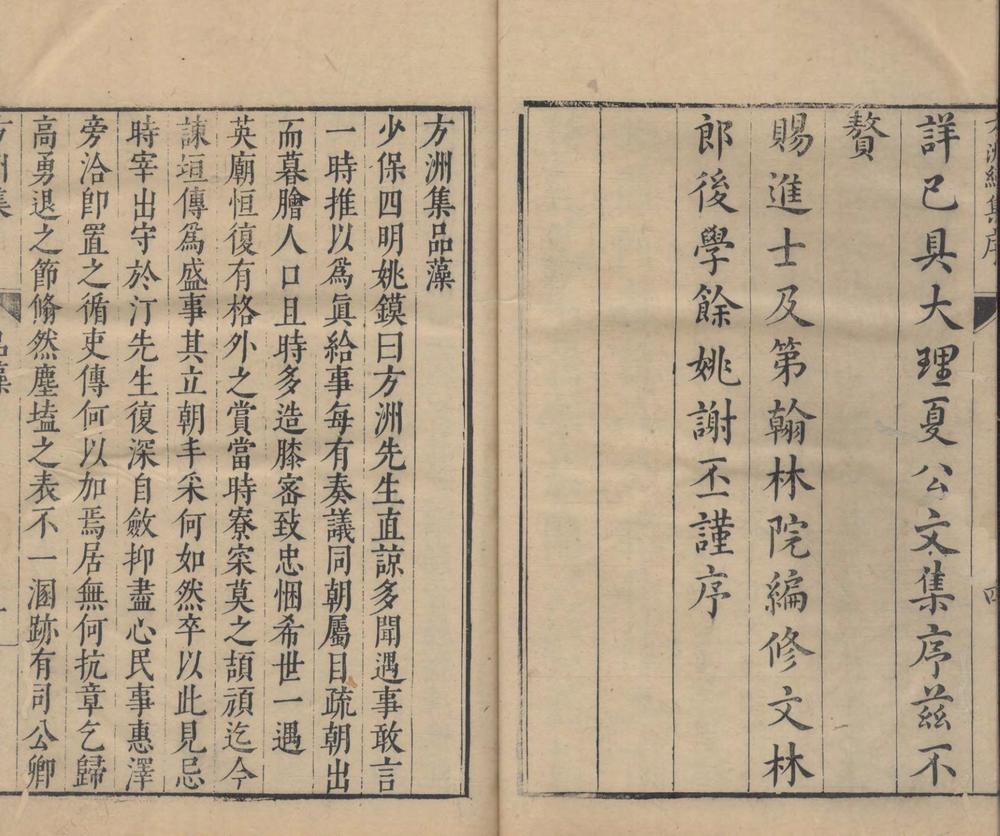 詳已具大理夏公文集序茲不
贅
賜進士及第翰林院編修文林
郎後學餘姚謝丕謹序
方洲集品藻
少保四明姚鏌曰方洲先生直諒多聞遇事敢言
一時推以為眞給事每有奏議同朝屬目疏朝出
而暮膾人口且時多造膝密致忠悃希世一遇
英廟恒復有格外之賞當時寮寀莫之頡頏迄今
諫垣傳為盛事其立朝丰采何如然卒以此見忌
時宰出守於汀先生復深自斂抑盡心民事惠澤
旁洽卽置之循吏傳何以加焉居無何抗章乞歸
高勇退之節翛然塵壒之表不一溷跡有司公卿